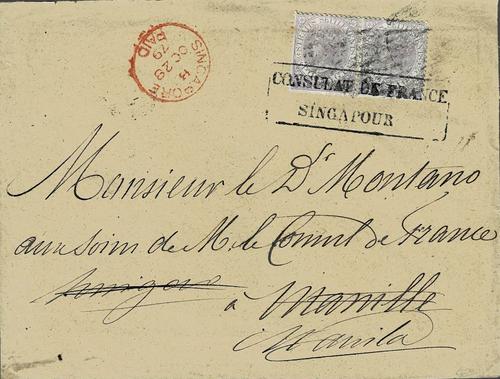 SINGAPORE
B
OC 29
79
PAID
CONSULAT DE FRANCE
SINGAPOUR
Monsieur le Dr Montano
aux soins de M. le Consul de France
à Manille
Manila